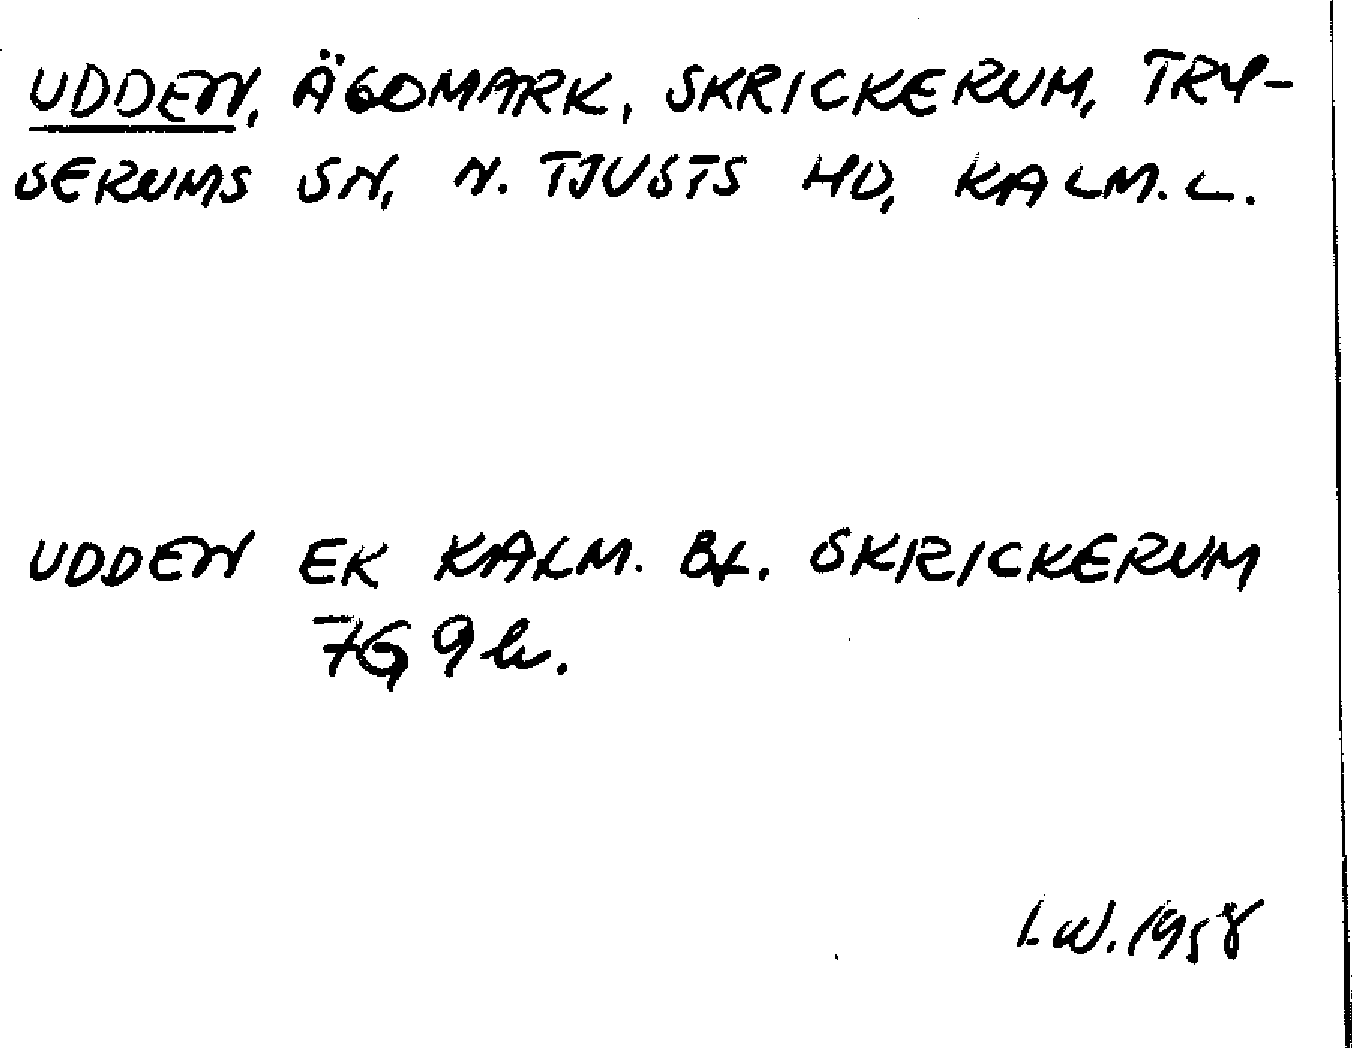 UDDEN, ÄGOMARK, SKRICKERUM, TRY-
SERUMS SN, N. TJUSTS HD, KALM. L.
UDDEN EK KALM. BL. SKRICKERUM
7G 9h.
I.W. 1958